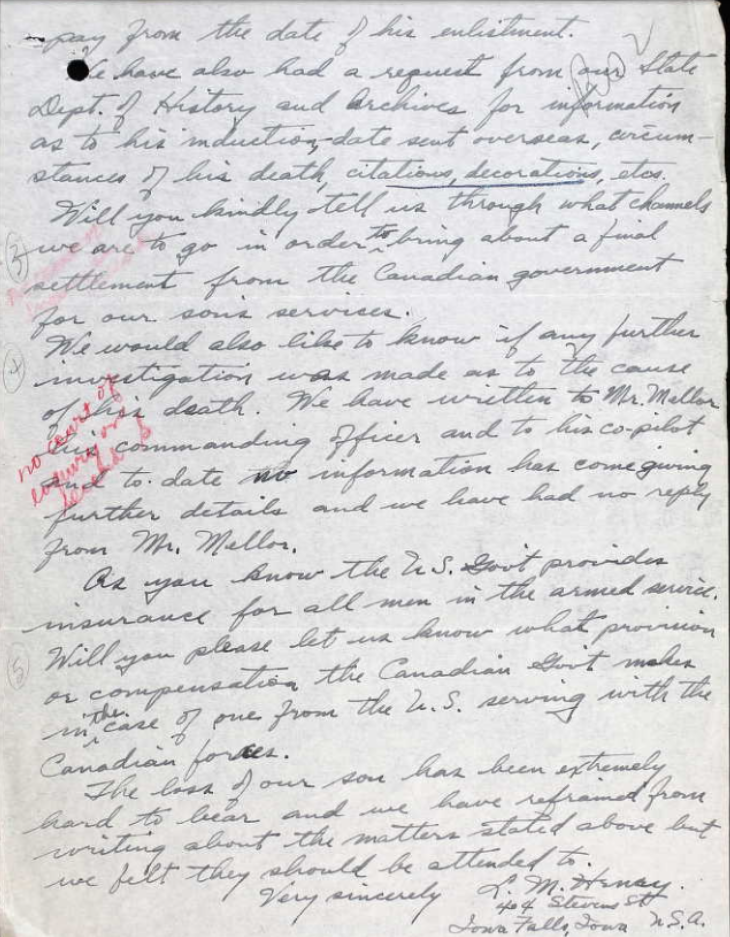 pay from the date of his enlistment.
We have also had a request from our State
Dept. of History and Archives for information
as to his induction, date sent overseas, circum-
stances of his death, citations, decorations, etc.
Will you kindly tell us through what channels
3 we are to go in order to bring about a final
settlement from the Canadian government
for our son's services.
We would also like to know if any further
4 investigation was made as to the cause
of his death. We have written to Mr. Mellor
his commanding officer and to his co-pilot
and to date no information has come giving
further details and we have had no reply
from Mr. Mellor.
no court of
enquiry
As you know the U.S. Gov't provides
insurance for all men in the armed service.
Will you please let us know what provision
5 or compensation the Canadian Gov't makes
in the case of one from the U.S. serving with the
Canadian forces.
The loss of our son has been extremely
hard to bear and we have refrained from
writing about the matters stated above but
we felt they should be attended to.
Very sincerely L. M. Henry.
404 Stevens St
Iowa Falls, Iowa U.S.A.